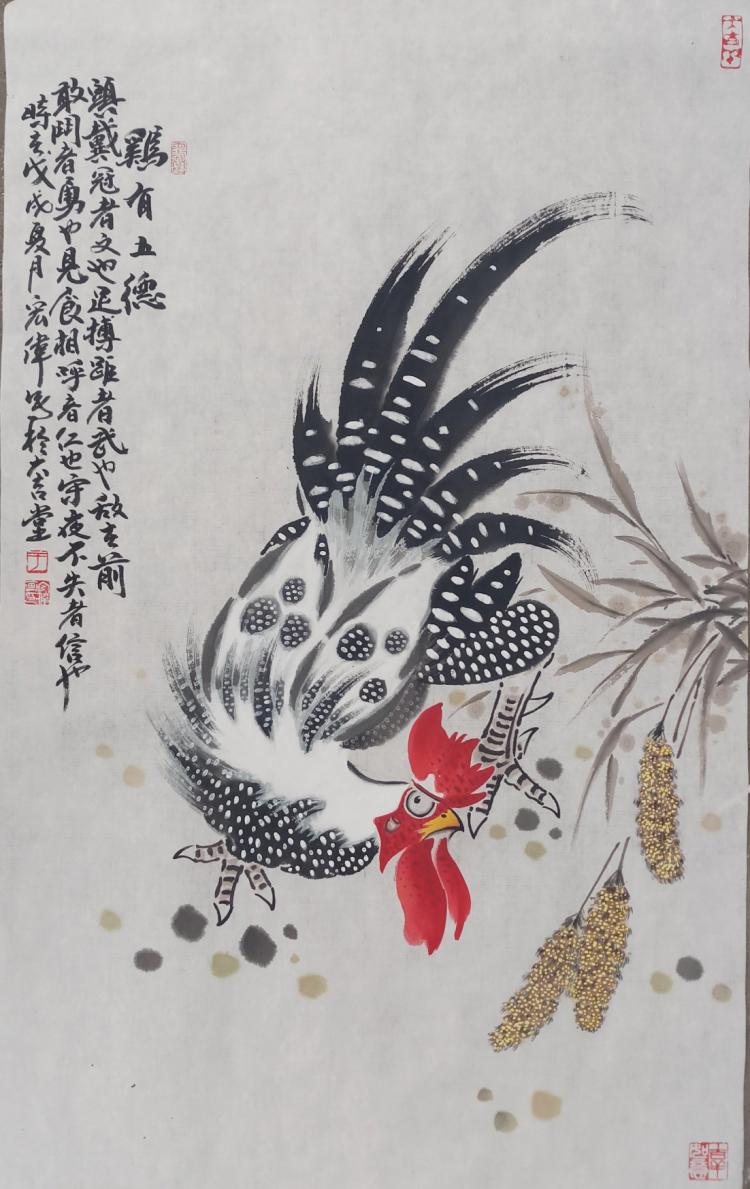 鷄有五德
頭戴冠者文也足搏距者武也敌在前
敢鬥者勇也見食相呼者仁也守夜不失者信也
時在戊戌夏月宏偉寫於大吉堂